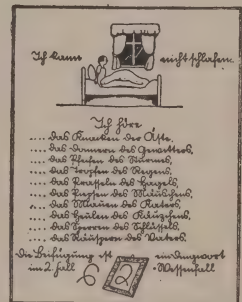 Ich kann nicht schlafen.
Ich höre
.... das Knacken der Äste,
.... das Donnern des Gewitters,
.... das Pfeifen des Sturmes,
.... das Tropfen des Regens,
.... das Prasseln des Hagels,
.... das Piepsen des Mäuschens,
.... das Miauen des Katers,
.... das Heulen des Käuzchens,
.... das Sperren des Schlüssels,
.... das Räuspern des Vaters.
die Beifügung ist ein Dingwort
im 2. Fall 2 Wessenfall